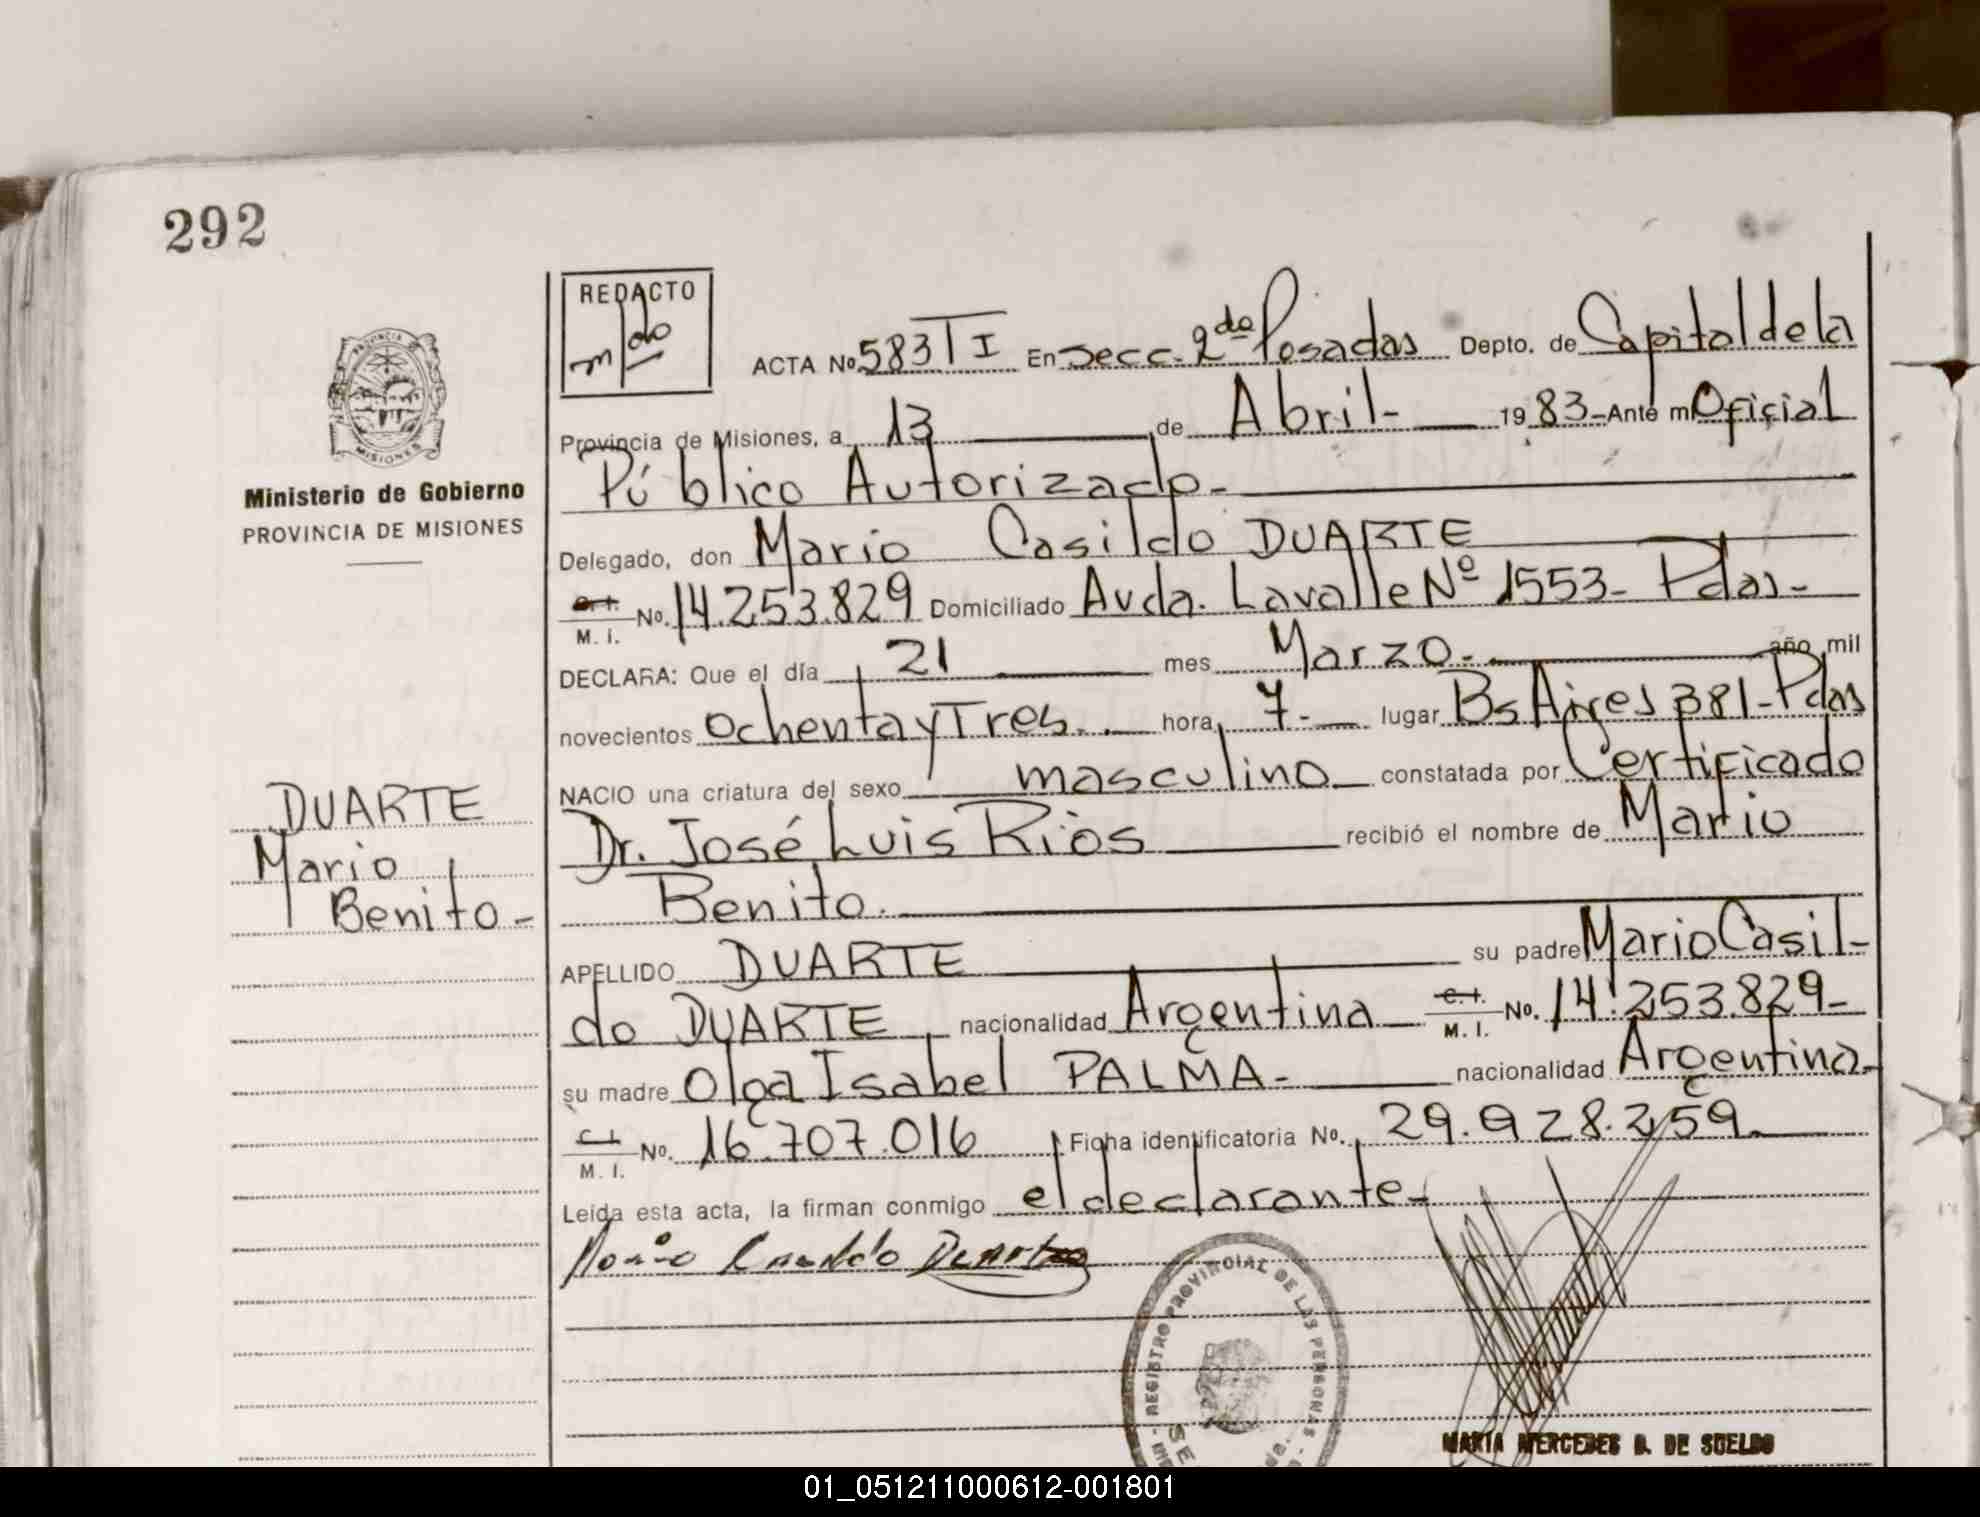 292
REDACTO
PROVINCIA
MISIONES
Ministerio de Gobierno
PROVINCIA DE MISIONES
ACTA No. 583 T I En Secc. 2da Posadas Depto. de Capital de la
Provincia de Misiones, a 13 de Abril- 1983- Ante mí Oficial
Público Autorizado-
Delegado, don Mario Casildo DUARTE
C. I. M. I. No. 14.253.829 Domiciliado Avda. Lavalle Nº 1553- Pdas-
DECLARA: Que el día 21 mes Marzo- año mil
novecientos ochenta y Tres. hora 7- lugar Bs Aires 381- Pdas
NACIO una criatura del sexo masculino constatada por Certificado
Dr. José Luis Ríos recibió el nombre de Mario
Benito.
DUARTE
Mario
Benito-
APELLIDO DUARTE su padre Mario Casil-
do DUARTE nacionalidad Argentina C. I. M. I. No. 14.253.829-
su madre Olga Isabel PALMA- nacionalidad Argentina-
C. I. M. I. No. 16.707.016 Ficha identificatoria No. 29.928.259-
Leída esta acta, la firman conmigo el declarante-
Mario Casildo Duarte
REGISTRO PROVINCIAL DE LAS PERSONAS
MARIA MERCEDES D. DE SUELDO
01_051211000612-001801